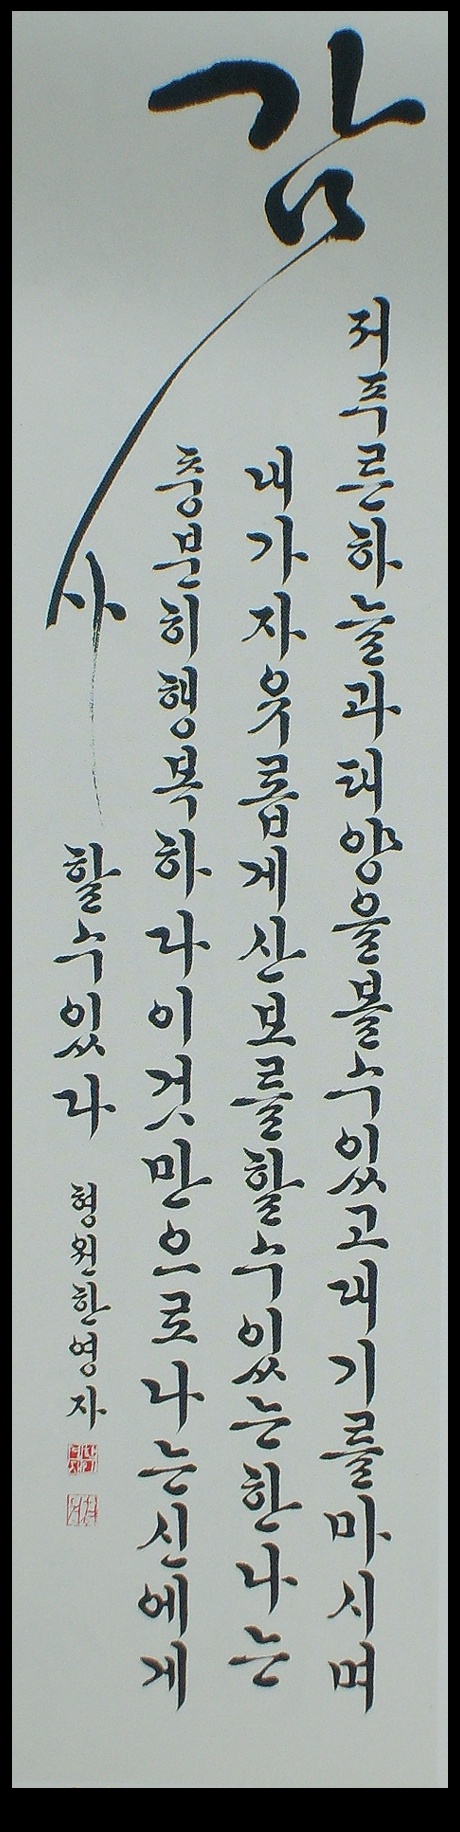 저푸른하늘과태양을볼수있고대기를마시며
내가자유롭게산보를할수있는한나는
충분히행복하다이것만으로나는신에게
감사
할수있다
형원한영자